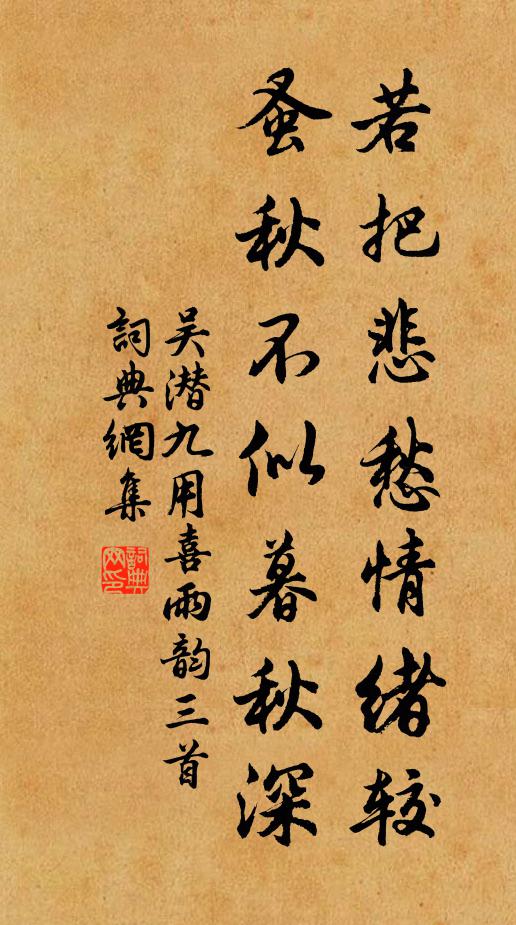 若把悲愁情绪较
蚤秋不似暮秋深
吴潜九用喜雨韵三首
詞典網集
詞典網印